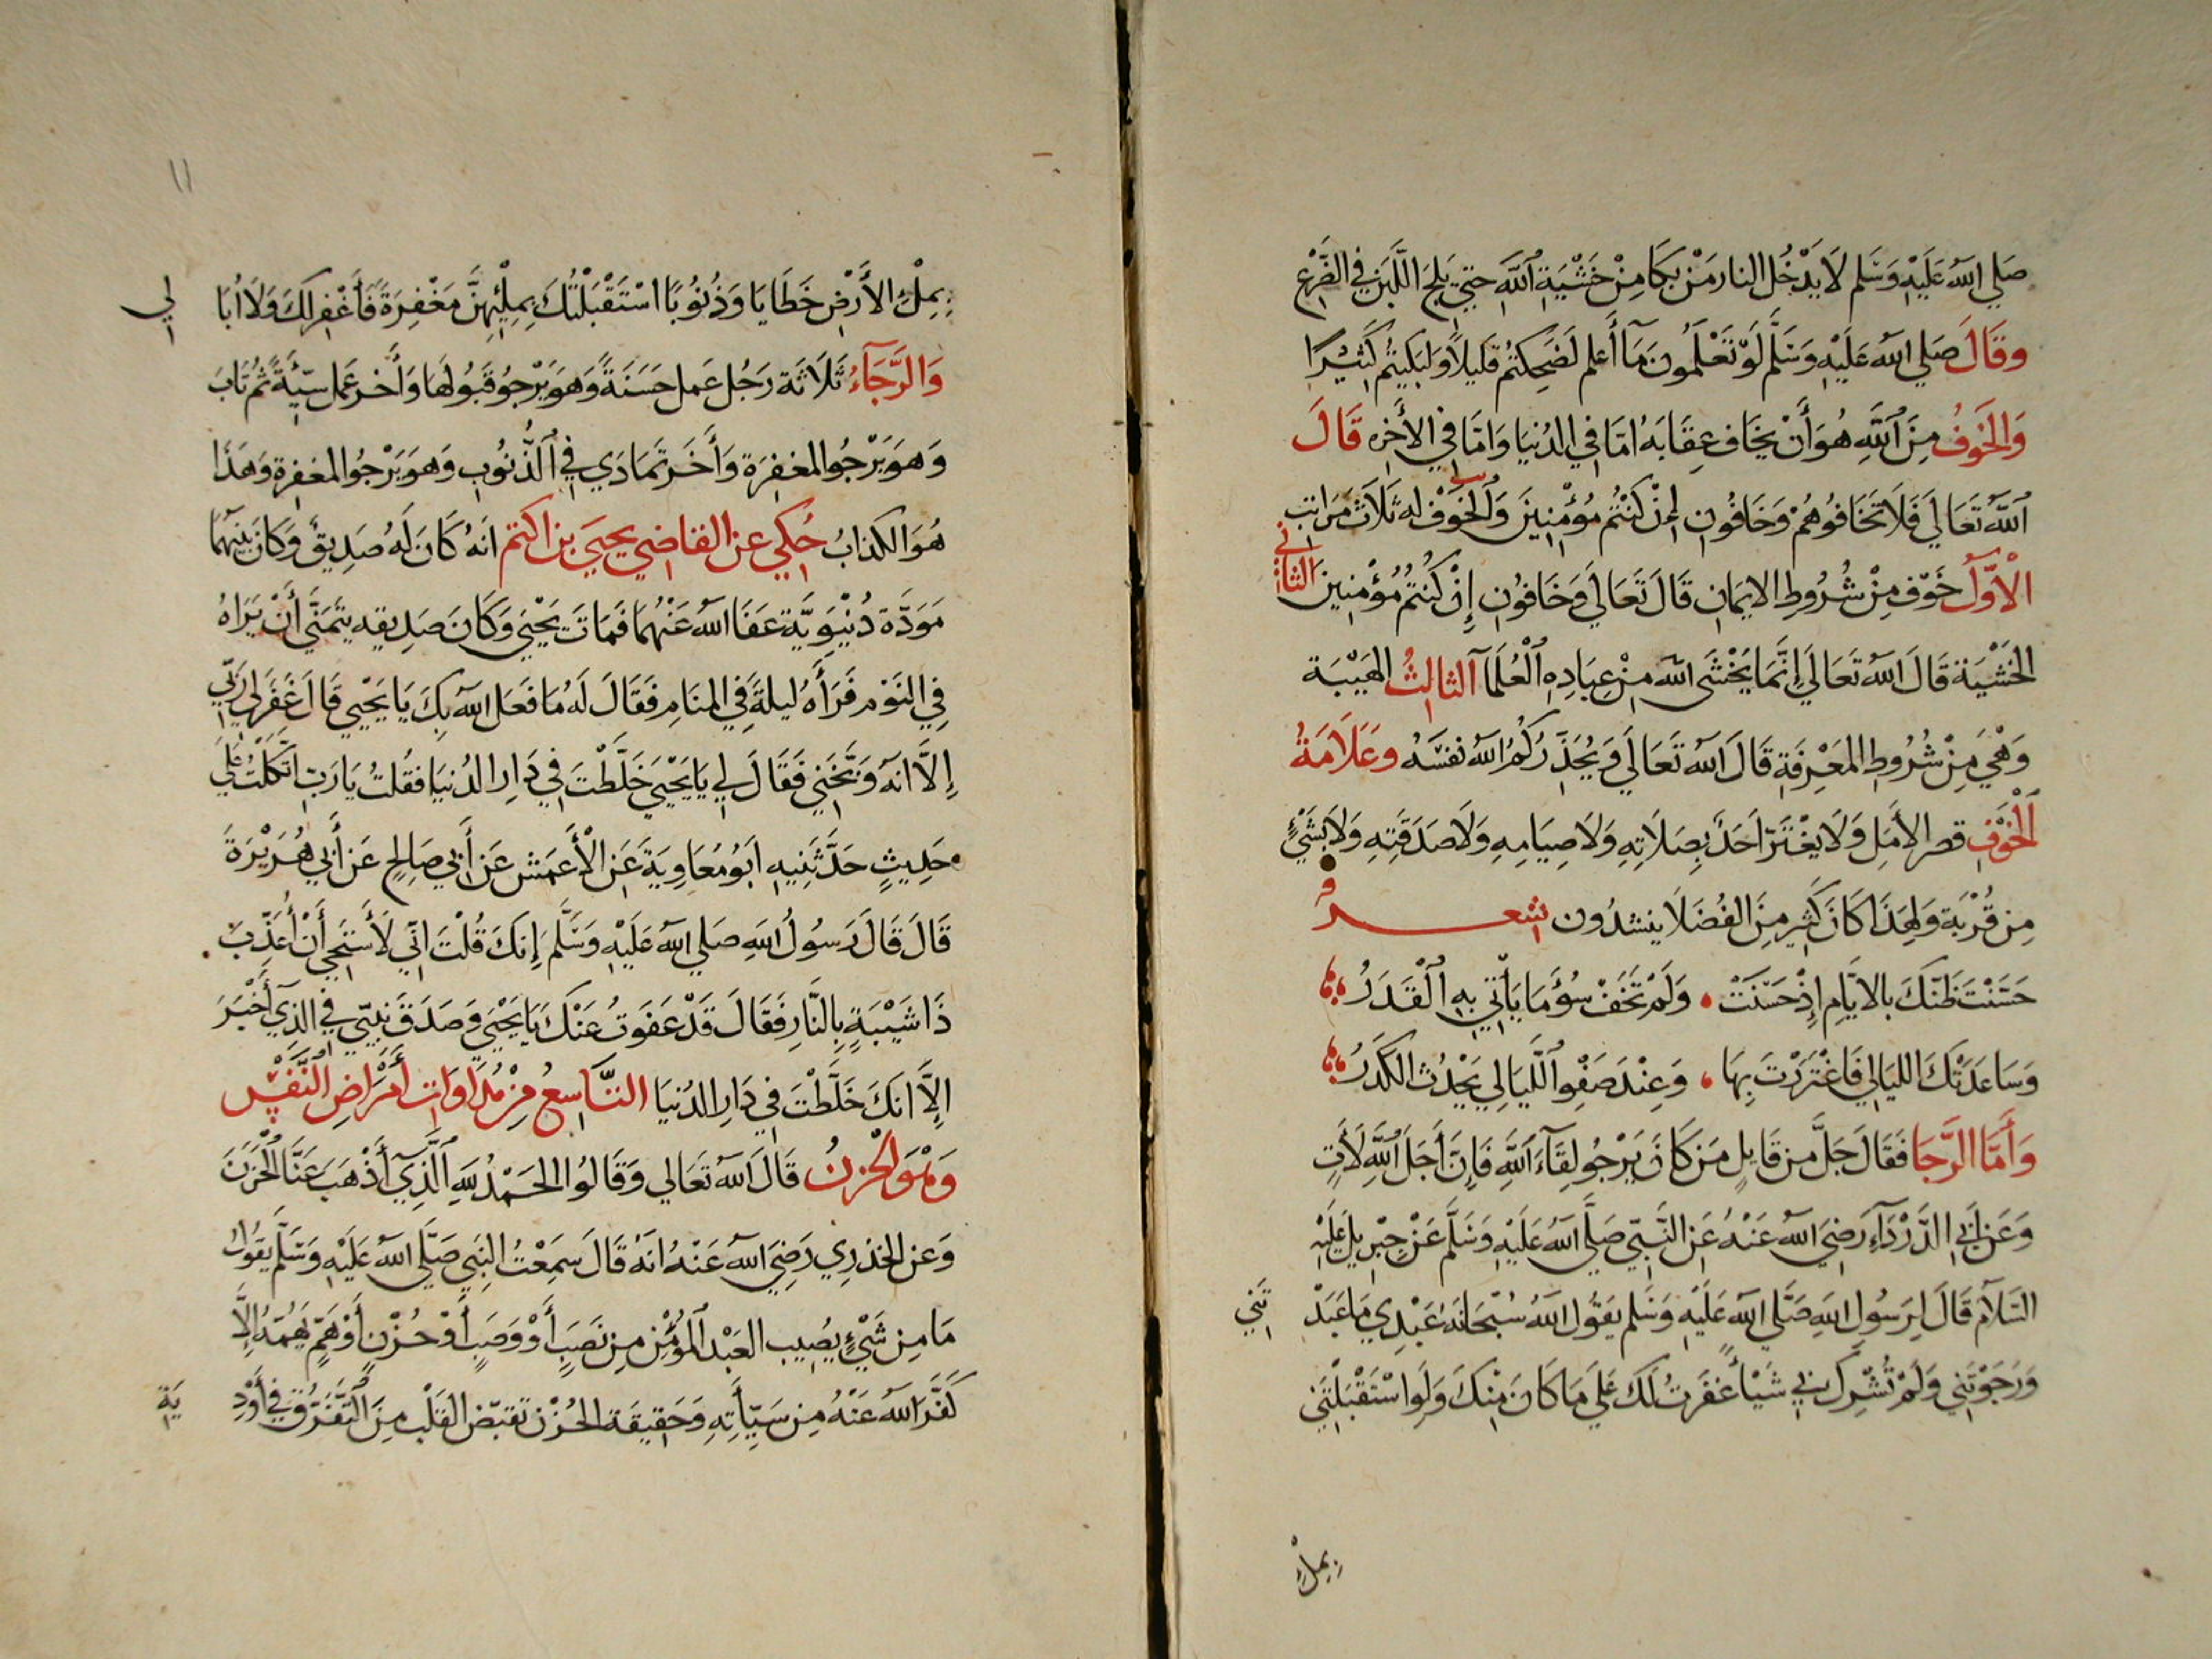 صَلي اللهُ عَلَيْهِ وَسَلم لَا يَدْخُل النار مَنْ بَكَا مِنْ خَشْيَةِ اللَّهِ حتي يَلِجَ اللَّبَن في الضَّرْعِ
وقَالَ صَلي اللهُ عَلَيْهِ وَسَلَّم لَوْ تَعْلَمُونَ مَا أَعلم لَضَحِكتُم قليلاً وَلبَكيتُم كَثِيْرًا
وَالخَوفُ مِنَ اللَّهِ هُوَ أَنْ يَخَاف عِقَابَهُ امّا في الدُنيَا وَامّا في الأخِرِه قَالَ
اللَّهُ تَعَالَي فَلَا تَخَافُوهُمْ وَخَافُونِ إِنْ كُنْتُم مُؤْمِنِينَ وَالخَوْف له ثَلَاث مَرَاتِب
الْأَوَّلُ خَوْف مِنْ شُرُوطِ الايمَانِ قَالَ تَعَالَي وَخَافُونِ إِنْ كُنتُم مُؤْمِنِين الثاني
الخَشْيَة قَالَ اللهُ تَعَالَي إِنَّمَا يَخْشَى اللهَ مِنْ عِبَادِهِ الْعُلَمَآ الثالِثُ الهَيْبَة
وَهْيَ مِنْ شُرُوطِ المَعْرِفَةِ قَالَ اللهُ تَعَالَي وَيُحَذِّرُكُمُ اللهُ نفسَهُ وعَلَامَةُ
الْخَوْفِ قصر الأَمَلِ وَلَا يَغْتَرّ احَدٌ بِصَلَاتِهِ وَلَا صِيَامِهِ وَلَا صَدَقَتِهِ وَلَا بشَيْءٍ
مِن قُرْبَة وَلِهَذَا كَانَ كَثِير مِنَ الفُضَلَا ينشدُون شعر
حَسَّنْتَ ظَنّكَ بالايَّامِ إِذْ حَسُنَتْ وَلَمْ تَخَفْ سُؤَ مَا يَأتِي بِهِ الْقَدَرُ
وَسَاعَدَتْكَ الليَالِي فَاغْتَرَرْتَ بِهَا وَعِنْدَ صَفْوِ اللَّيَالِي يَحْدُث الكَدَرُ
وَأَمَّا الرَّجَا فَقَالَ جَلَّ مِن قَايِلٍ مَن كَانَ يَرْجُو لِقَآءَ اللَّهِ فَإِنَّ أَجَلَ اللَّهِ لَأَتٍ
وَعَن أَبِي الدَّرْدَآءِ رَضِيَ اللهُ عَنْهُ عَنِ النَّبِيّ صَلَّي اللهُ عَلَيْهِ وَسَلَّم عَنْ جِبْرِيل عَلَيْهِ
السَّلَام قَالَ لِرَسُولِ اللهِ صَلَّي اللهُ عَلَيْهِ وَسَلم يَقُول اللهُ سُبْحَانَهُ عَبْدِي مَا عَبَدْ تَنِي
وَرَجَوْتَنِي وَلَمْ تُشْرِك بِي شَيْأً غَفَرتُ لَكَ عَلَي مَا كَانَ مِنْكَ وَلَو اسْتَقْبَلْتَنِي
بِمِلْءِ
١١
بِمِلْءِ الأَرْضِ خَطَايَا وَذُنُوبًا اسْتَقْبَلْتُكَ بِمِلْئِهِنَّ مَغْفِرَةً فَأَغْفِر لَكَ وَلَا أُبَا لِي
وَالرَّجَآءُ ثَلَاثَة رَجُل عَمل حَسَنَةً وَهوَ يَرْجُو قَبُولَهَا وَأَخر عَمل سيّئَةً ثُم تَابَ
وَهوَ يَرْجُو المغفِرَة وَأَخَر تمَادَي فِي الذُّنُوبِ وَهوَ يَرْجُو المغفِرة وَهَذَا
هُوَ الكَذابُ حُكِي عن القاضِي يحيَي بن اكتم انَهُ كَانَ لَهُ صَدِيقٌ وَكَانَ بَيْنَهُمَا
مَوَدَّة دُنْيَوِيَّة عَفَا اللهُ عَنْهُمَا فَمَاتَ يَحْيَي وَكَانَ صَدِيقه يَتَمَنَّي أَنْ يَرَاهُ
فِي النَوْم فَرَأَهُ لَيلَةً فِي المنَامِ فَقَالَ لَهُ مَا فَعَل اللهُ بِكَ يَا يَحْيي قَال غَفَرَ لِي رَبِّي
إِلَّا انَّهُ وَبَّخَنِي فَقَالَ لِي يَا يَحْيَي خَلَّطْتَ فِي دَارِ الدُنيَا فَقُلتُ يَا رَبّ اتَّكَلْتُ عَلَي
حَدِيثٍ حَدَّثَنِيهِ ابُو مُعَاوِيَةَ عَنِ الْأَعمَش عَن أَبِي صَالِحٍ عَن أَبِي هُرَيْرَةَ
قَالَ قَالَ رَسُولُ اللهِ صَلي اللهُ عَلَيْهِ وَسَلَّم إِنكَ قُلْتَ انِّي لَأَسْتَحِي أَنْ أُعَذِّبَ
ذَا شَيْبَةٍ بِالنَّارِ فَقَالَ قَدْ عَفَوتُ عَنْكَ يَا يَحْيَي وَصَدَقَ نَبِيّي فِي الذِي أَخْبَرَ
إِلَّا انكَ خَلَّطْتَ فِي دَارِ الدُنيَا التَّاسِعُ مِنْ مُدَاوَاتِ أَمْرَاضِ النَّفْسِ
وَهُوَ الْحُزنُ قَالَ اللهُ تَعَالي وَقَالُوا الحَمْدُ لِلَّهِ الَّذِي أَذْهَبَ عَنَّا الْحَزَنَ
وَعن الخدرِي رَضِيَ اللهُ عَنْهُ انَهُ قَالَ سَمِعْتُ النبَي صَلَّي اللهُ عَلَيْهِ وَسَلَّم يَقُولُ
مَا مِن شَيْءٍ يصُيب العَبْدَ المُؤْمِن مِن نَصَبٍ أَوْ وَصَبٍ أَوْ حُزْنٍ أَوْ هَمٍّ يَهُمّهُ إِلَّا
كَفَّرَ اللهُ عَنْهُ مِن سَيِّأَتِهِ وَحَقِيقَة الحُزْن تَقبّض القَلْب مِنَ التَّفَرُّقِ فِي أَوْدِ يَةِ